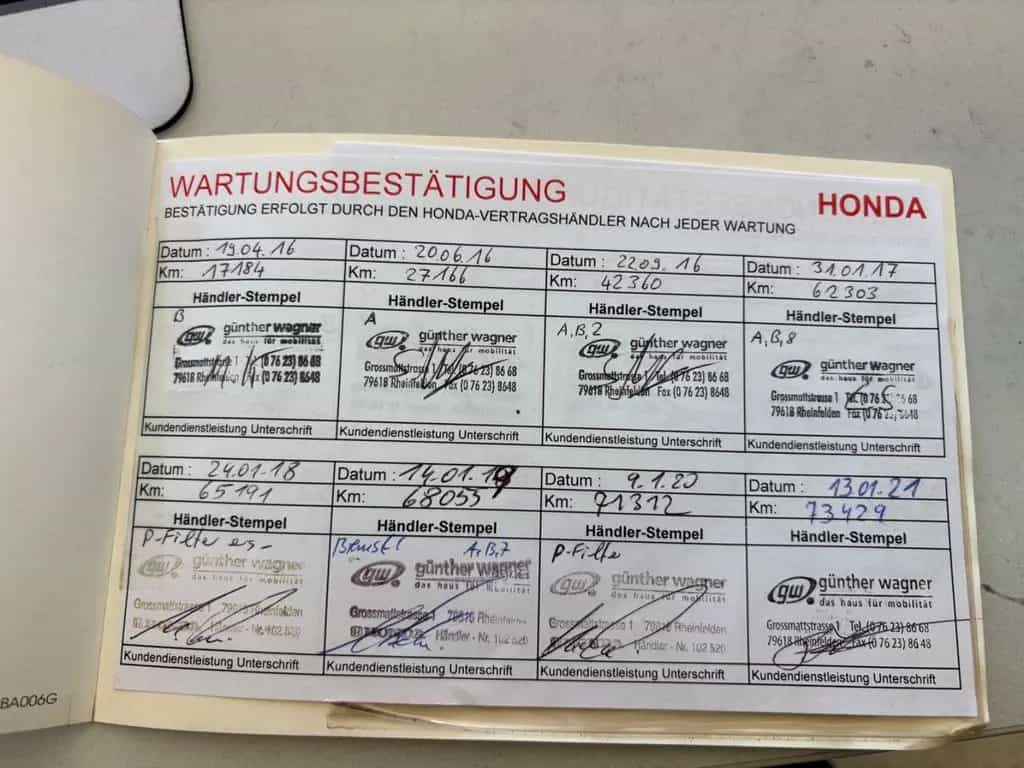 WARTUNGSBESTÄTIGUNG
HONDA
BESTÄTIGUNG ERFOLGT DURCH DEN HONDA-VERTRAGSHÄNDLER NACH JEDER WARTUNG
Datum : 19.04.16
Km: 17184
Händler-Stempel
B
gw günther wagner
das haus für mobilität
Grossmattstrasse 1 (0 76 23) 86 68
79618 Rheinfelden Fax (0 76 23) 8648
Kundendienstleistung Unterschrift
Datum : 20.06.16
Km: 27166
Händler-Stempel
A
gw günther wagner
das haus für mobilität
Grossmattstrasse 1 Tel. (0 76 23) 86 68
79618 Rheinfelden Fax (0 76 23) 8648
Kundendienstleistung Unterschrift
Datum : 22.09.16
Km: 42360
Händler-Stempel
A,B,2
gw günther wagner
das haus für mobilität
Grossmattstrasse 1 Tel. (0 76 23) 86 68
79618 Rheinfelden Fax (0 76 23) 8648
Kundendienstleistung Unterschrift
Datum : 31.01.17
Km: 62303
Händler-Stempel
A,B,8
gw günther wagner
das haus für mobilität
Grossmattstrasse 1 Tel. (0 76 23) 86 68
79618 Rheinfelden Fax (0 76 23) 8648
Kundendienstleistung Unterschrift
Datum : 24.01.18
Km: 65191
Händler-Stempel
P-Filter
gw günther wagner
das haus für mobilität
Grossmattstrasse 1 79618 Rheinfelden
Händler - Nr. 102 520
Kundendienstleistung Unterschrift
Datum : 14.01.19
Km: 68055
Händler-Stempel
A,B,7
gw günther wagner
das haus für mobilität
Grossmattstrasse 1 79618 Rheinfelden
Händler - Nr. 102 520
Kundendienstleistung Unterschrift
Datum : 9.1.20
Km: 71312
Händler-Stempel
P-Filter
gw günther wagner
das haus für mobilität
Grossmattstrasse 1 79618 Rheinfelden
Händler - Nr. 102 520
Kundendienstleistung Unterschrift
Datum : 13.01.21
Km: 73429
Händler-Stempel
gw günther wagner
das haus für mobilität
Grossmattstrasse 1 Tel. (0 76 23) 86 68
79618 Rheinfelden Fax (0 76 23) 86 48
Kundendienstleistung Unterschrift
BA006G